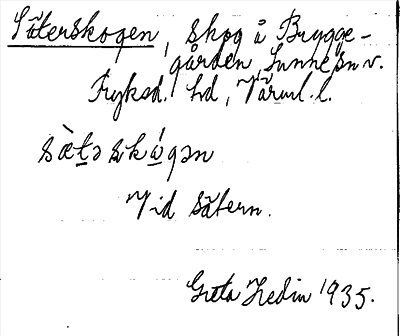 Säterskogen, skog å Brygge-
gården, Sunne sn v.
Fryksd. hd, Värml. l.
sæ̀tə skówgən
Vid sätern.
Greta Hedin 1935.